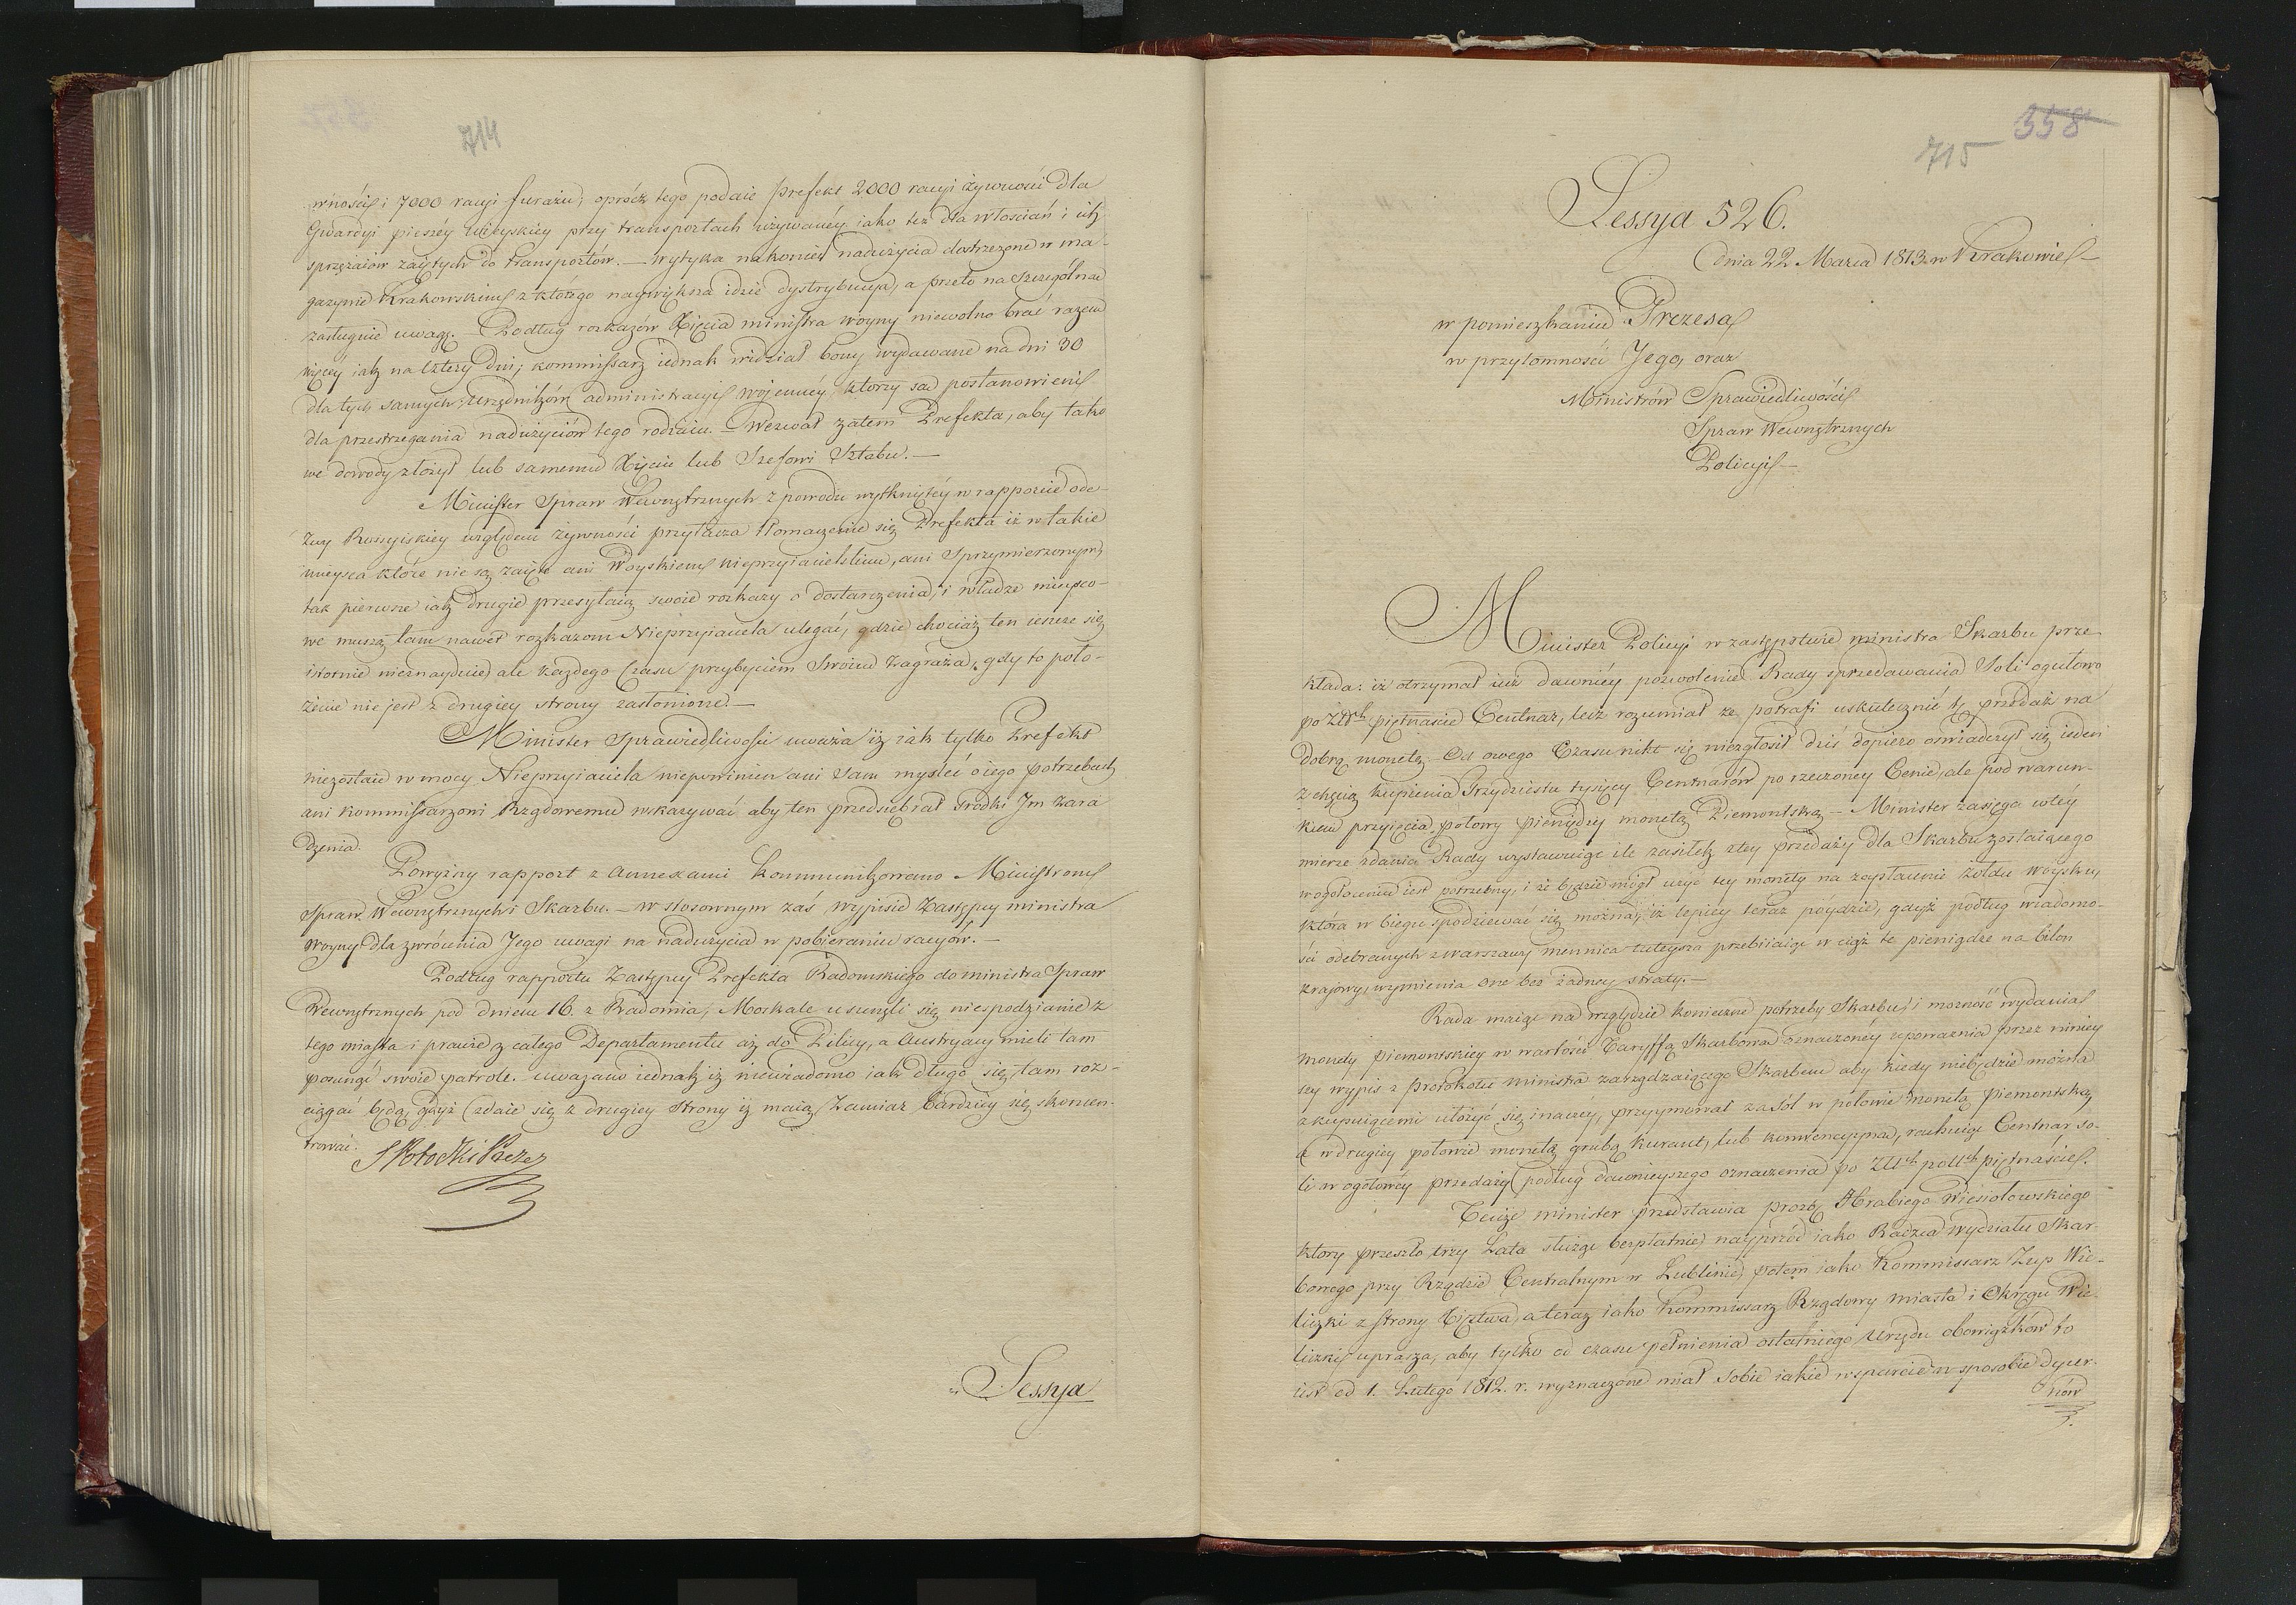 714
wności i 7000 racyi furażu; oprócz tego podaie prefekt 2000 racyi żywności dla
Gwardyi pieszéy mieyskiey przy transportach używanéy iako też dla włościań i ich
sprzężaiów zaiętych do transportów. — Wytyka nakoniec nadużycia dostrzeżone w ma-
gazynie Krakowskim z którego naywiększa idzie dystrybucya, a przeto na szczególną
zasługuie uwagę. — Podług rozkazów Xięcia ministra woyny niewolno brać razem
więcey iak na cztery dni; kommissarz iednak widział bony wydawane na dni 30
dla tych samych urzędników administracyi wojennéy, ktorzy są postanowieni
dla przestrzegania nadużyciów tego rodzaiu. — Wezwał zatem Prefekta, aby tako-
we dowody złożył lub samemu Xięciu lub Szefowi Sztabu. —
Minister Spraw Wewnętrznych z powodu wytkniętéy w rapporcie ode-
zwy Rossyiskiey względem żywności przytacza tłomaczenie się Prefekta iż w takie
mieysca które nie są zaięte ani Woyskiem nieprzyiacielskim, ani Sprzymierzonym,
tak pierwsze iak drugie przesyłaią swoie rozkazy o dostarczenia, i władze mieysco-
we muszą tam nawet rozkazom Nieprzyiaciela ulegać, gdzie chociaż ten ieszcze się
istotnie nieznayduie, ale każdego czasu przybyciem Swoim zagraża, gdy to poło-
żenie nie jest z drugiey strony zasłonione. —
Minister Sprawiedliwości uważa iż iak tylko Prefekt
niezostaie w mocy Nieprzyiaciela niepowinien ani sam myśleć o iego potrzebach
ani kommissarzowi Rządowemu wskazywać aby ten przedsiębrał środki Im zara
dzenia.
Powyższy rapport z annexami kommunikowano Ministrom
Spraw Wewnętrznych i Skarbu. — w stosownym zaś wypisie Zastępcy ministra
Woyny dla zwrócenia Jego uwagi na nadużycia w pobieraniu racyów. —
Podług rapportu Zastępcy Prefekta Radomskiego do ministra Spraw
Wewnętrznych pod dniem 16. z Radomia, Moskale usunęli się niespodzianie z
tego miasta i prawie z całego Departamentu aż do Pilicy, a Austryacy mieli tam
posunąć swoie patrole. uważano iednak iż niewiadomo iak długo się tam roz-
ciągać będą, gdyż zdaie się z drugiey strony iż maią zamiar bardziey się skoncen-
trować.
S Potocki Prezes
Sessya
358
715
Sessya 526.
Dnia 22 Marca 1813 w Krakowie —
w pomieszkaniu Prezesa
w przytomności Jego, oraz
Ministrów Sprawiedliwości
Spraw Wewnętrznych
Policyi —
Minister Policyi w zastępstwie ministra Skarbu prze-
kłada: iż otrzymał iuż dawniéy pozwolenie Rady sprzedawania Soli ogułowo
po piętnaście Centnar, lecz rozumiał że potrafi uskutecznić tę przedaż na
dobrą monetę. — Od owego Czasu nikt się niezgłosił, dziś dopiero oświadczył się ieden
z chęcią kupienia Trzydziestu tysięcy Centnarów po rzeczoney Cenie, ale pod warun-
kiem przyięcia połowy pieniędzy monetą Piemontską — Minister zasięga w téy
mierze zdania Rady wystawuiąc ile zasiłek z tey przedaży dla Skarbu zostaiącego
w ogołoceniu iest potrzebny, i że będzie mógł użyć tey monety na zapłacenie żołdu woysku,
która w biegu podziewać się można, iż lepiey teraz póydzie, gdyż podług wiadomo-
ści odebranych z Warszawy mennica tuteysza przebiiaiąc w ciąż te pieniądze na bilon
kraiowy, wymienia one bez żadney straty. —
Rada maiąc na względzie konieczne potrzeby Skarbu i możność wydania
monety piemontskiey w wartości Taryffą Skarbową oznaczonéy upoważnia przez niniey
szy wypis z protokołu ministra zarządzaiącego Skarbem aby kiedy niebędzie można
z kupuiącemi ułożyć się inaczéy, przyymował za sól w połowie monetą piemontską,
a w drugiey połowie monetą grubą Kurant, lub konwencyyną, rachuiąc Centnar so-
li w ogołowéy przedaży podług dawnieyszego oznaczenia po piętnaście.
Tenże minister przedstawia prozbę Hrabiego Wiesiołowskiego
ktory przeszło trzy Lata służąc bezpłatnie, nayprzód iako Radzca Wydziału Skar-
bowego przy Rządzie Centralnym w Lublinie, potem iako Kommissarz Żup Wie-
liczki z strony Xięstwa, a teraz iako Kommissarz Rządowy miasta i Okręgu Wie-
liczki, uprasza, aby tylko od czasu pełnienia ostatniego Urzędu obowiązków to
iest od 1. Lutego 1812. r. wyznaczone miał Sobie iakie wsparcie w sposobie dyur-
nów